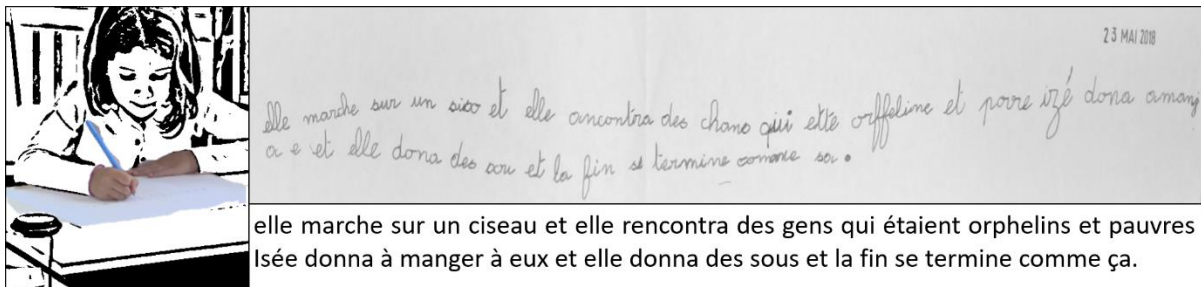 23 MAI 2018
elle marche sur un siso et elle ancontra des chans qui etté orffeline et povre izé dona amanj
a e et elle dona des sou et la fin se termine comme sa.
elle marche sur un ciseau et elle rencontra des gens qui étaient orphelins et pauvres
Isée donna à manger à eux et elle donna des sous et la fin se termine comme ça.